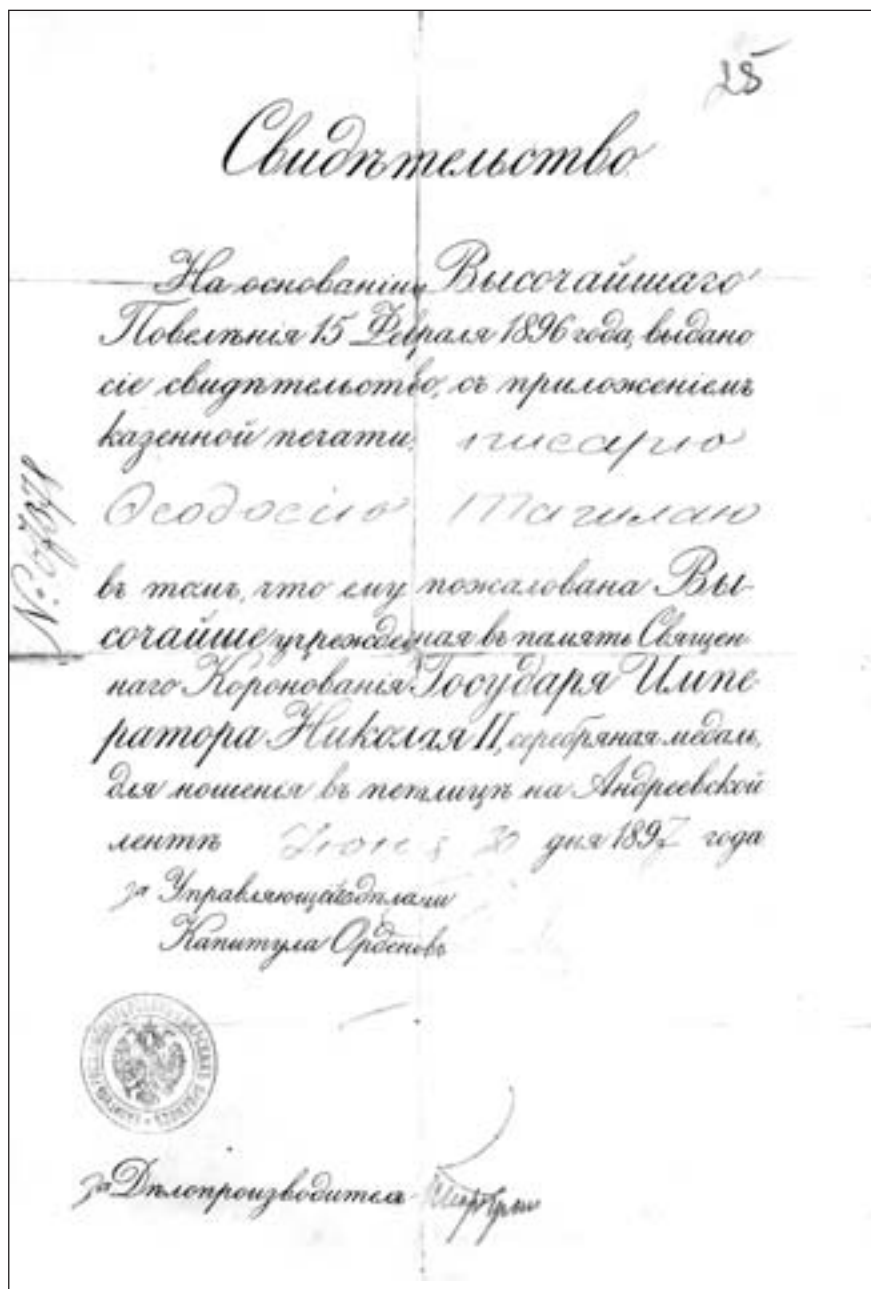 25
Свидѣтельство
На основаніи Высочайшаго
Повелѣнія 15 Февраля 1896 года, выдано
сіе свидѣтельство, съ приложеніемъ
казенной печати, писарю
Ѳеодосію
въ томъ, что ему пожалована Вы-
сочайше учрежденная въ память Священ-
наго Коронованія Государя Импе-
ратора Николая II, серебряная медаль,
для ношенія въ петлицѣ на Андреевской
лентѣ Іюня 30 дня 1897 года
за Управляющаго дѣлами
Капитула Орденовъ
за Дѣлопроизводителя